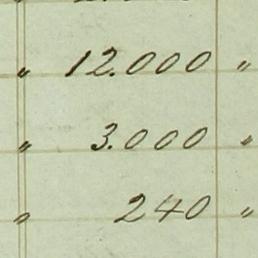 „ 12.000 „
„ 3.000 „
„ 240 „